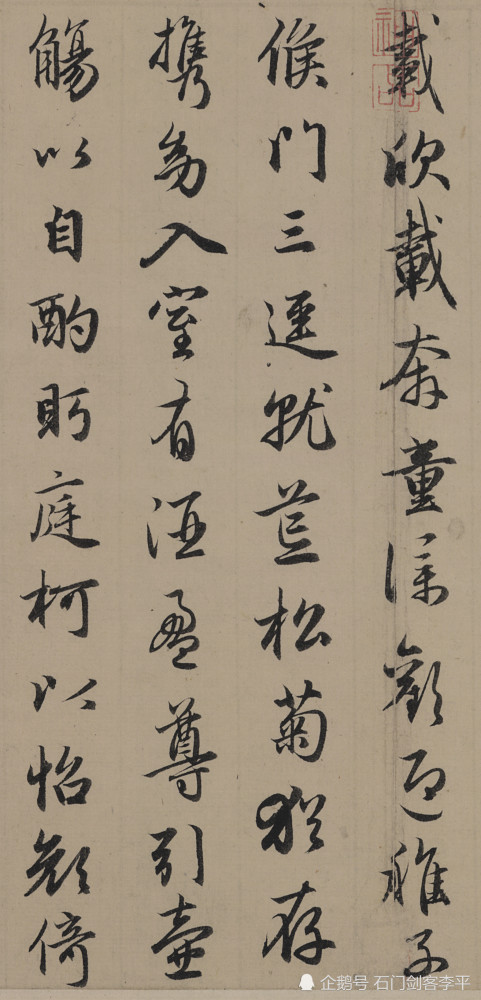 載欣載奔童僕歡迎稚子
候門三逕就荒松菊猶存
携幼入室有酒盈尊引壺
觴以自酌眄庭柯以怡顏倚
企鹅号 石门剑客李平